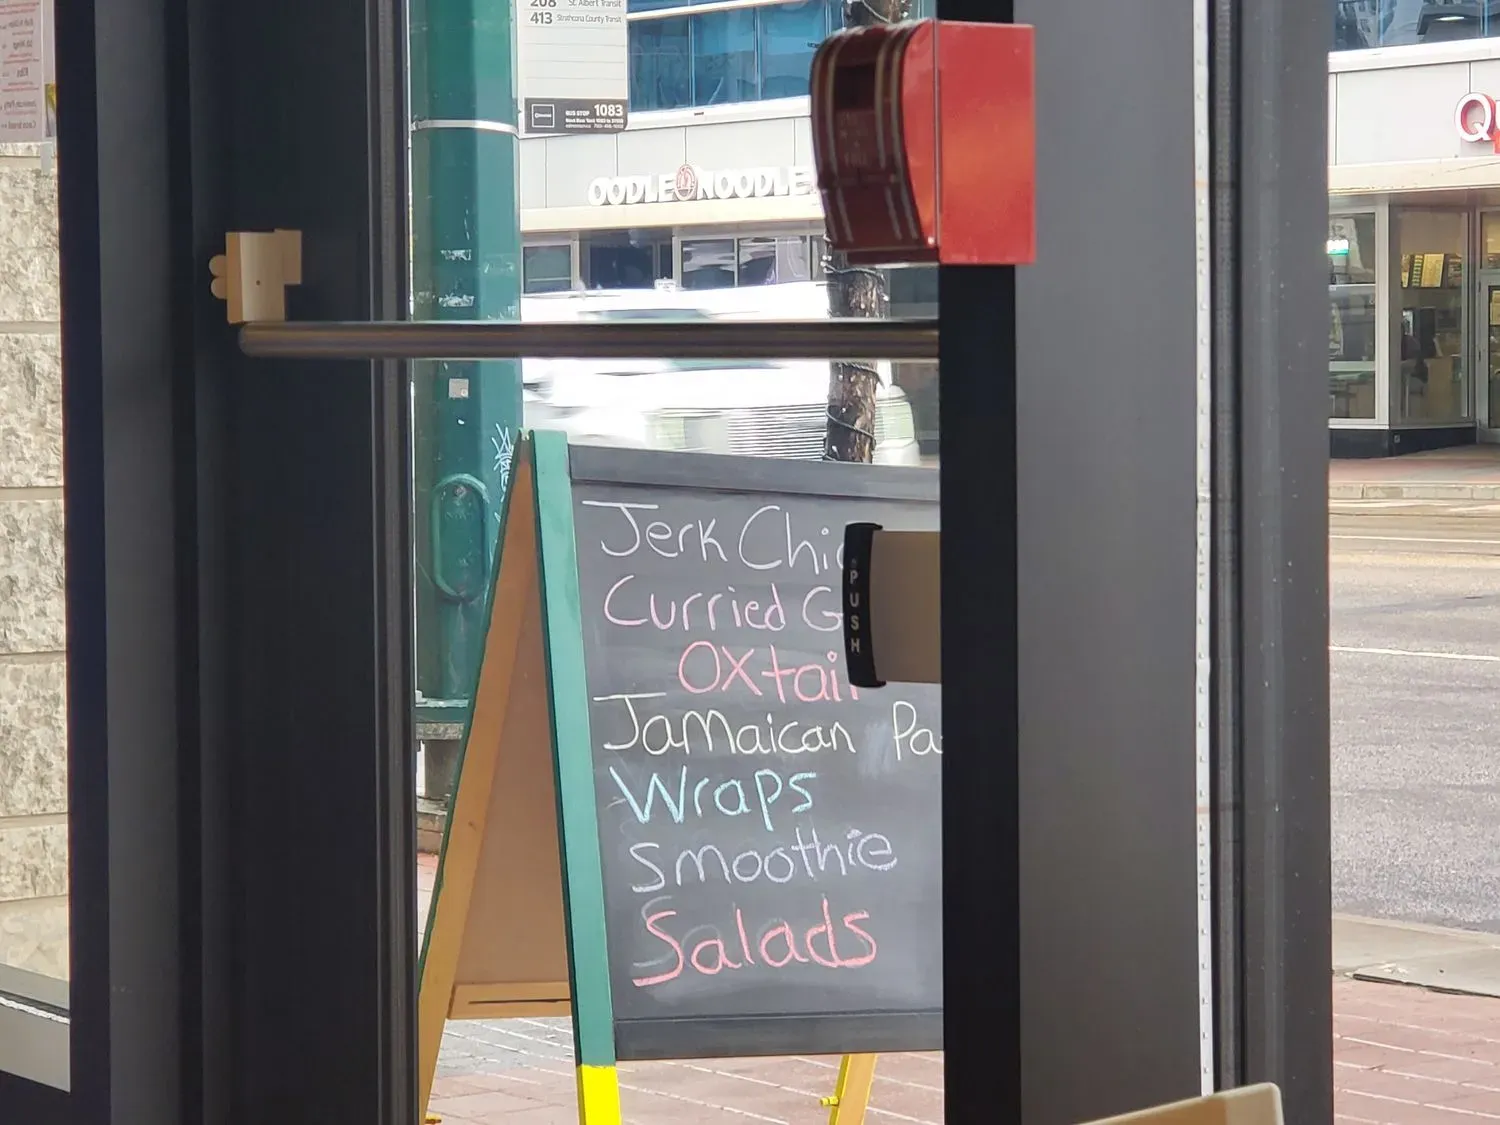 208 St. Albert Transit
413 Strathcona County Transit
BUS STOP 1083
OODLE NOODLE
Q
PUSH
Jerk Chic
Curried G
Oxtail
Jamaican Pa
Wraps
Smoothie
Salads